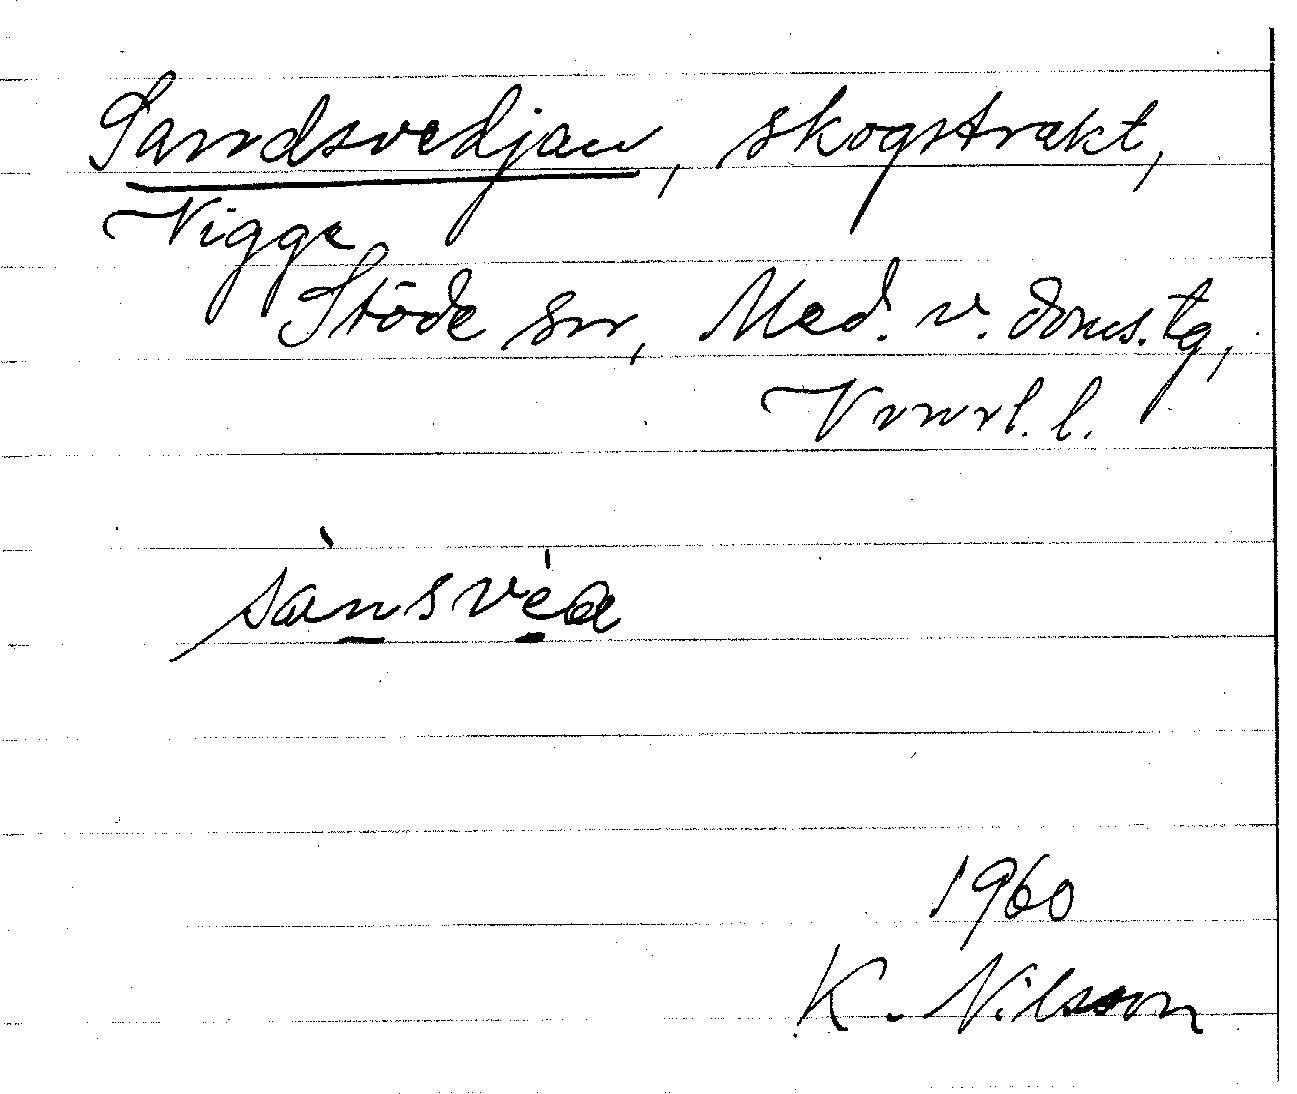 Sandsvedjan, skogstrakt,
Vigge
Stöde sn, Med. v. doms. tg,
Vnorl. l.
sànsvéa
1960
K. Nilsson